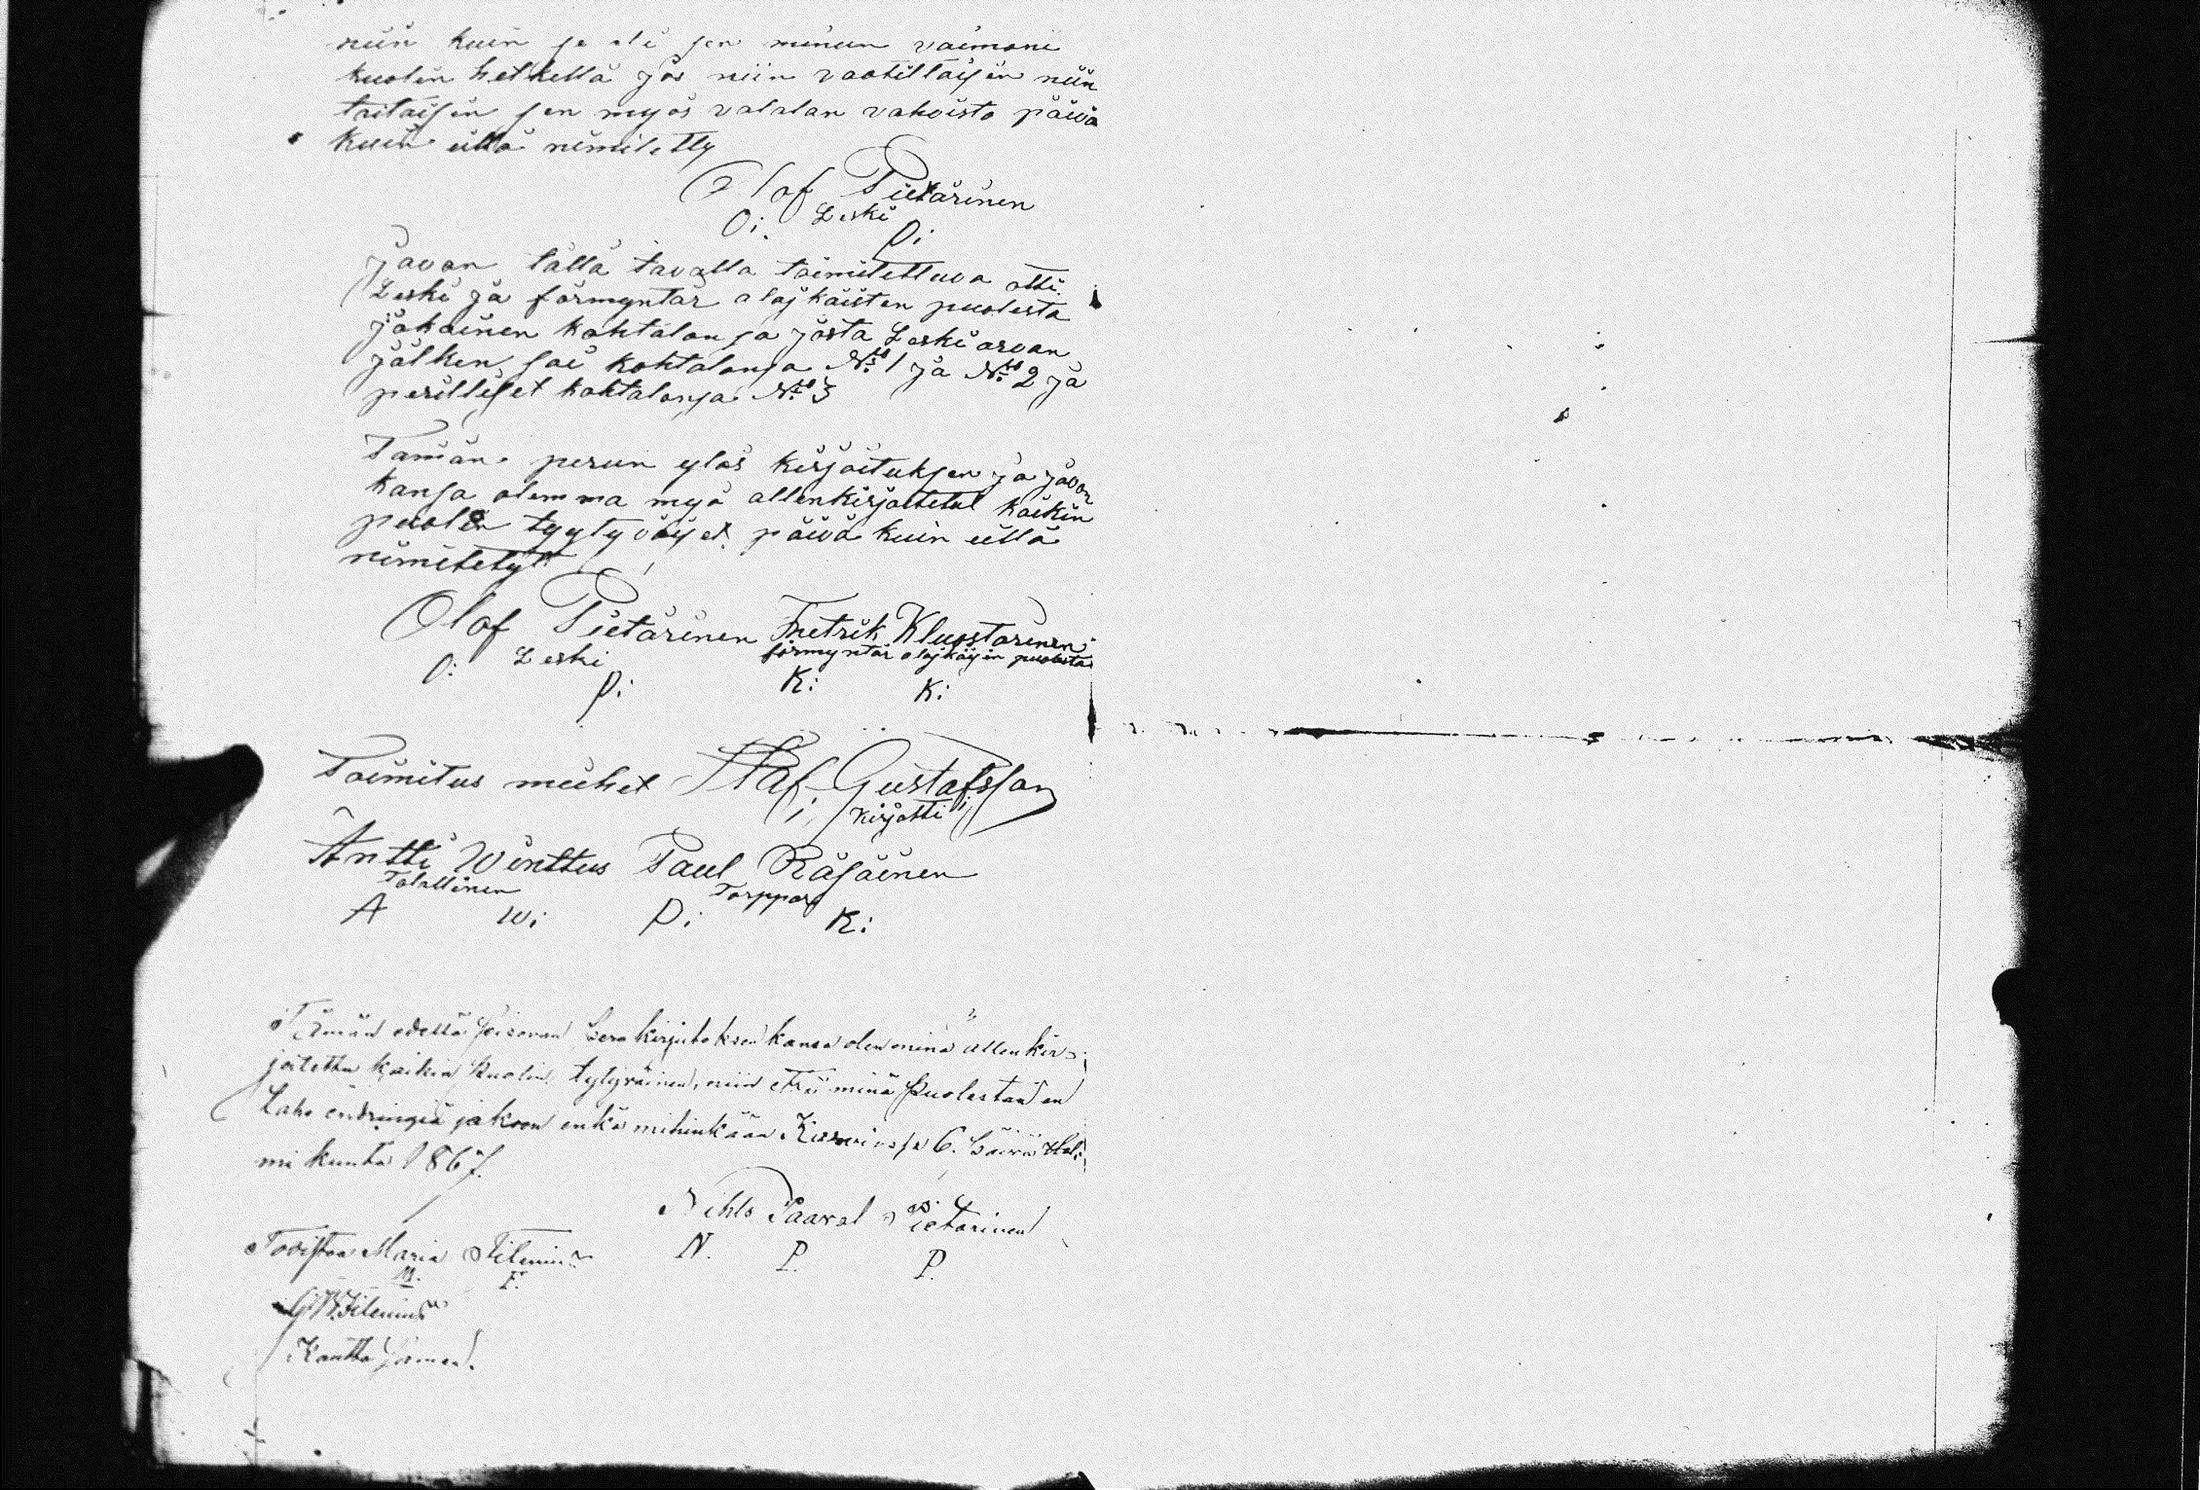 niin kuin se oli sen minun vaimoni
kuolin hetkellä jos niin vaatittaisiin niin
taitaisin sen myös valalan vahvista päivä
kuin ällä nimitetty
Olof Pietarinen
Leski
O: P:
Javon tällä tavalla toimitettuva otti
Leski ja förmyntär alajkäisten puolesta
jokainen kohtalonsa josta Leski arvan
jälken sai kohtalonsa No 1 ja No 2 ja
perilliset kohtalonsa No 3
Tämän perun ylös kirjoituksen ja javon
kansa olemma myö allenkirjoitetut kaikin
puolin tyytyväiset päivä kuin üllä
nimitetyt
Olof Pietarinen Fretrik Kluostarinen
Leski förmyntär alajkäisin puolesta
O: P: K: K:
Toimitus miehet Staf Gustafsson
Kirjotti
Antti Winttus Paul Räsäinen
Talallinen Torppar
A W: P: R:
Tämän edellä seisovan Peru kirjutuksen kansa olen minä allenkir-
joitettu kaikin puolin tytyväinen, niin että minä puolestan en
Laho endringiä jakoon enkä mihinkään 6. Päivä Hel-
mi kuuta 1867.
Nihlo Paaval Pietarinen
N. P. P.
Todistaa Maria Filenius
M. F.
G W Filenius